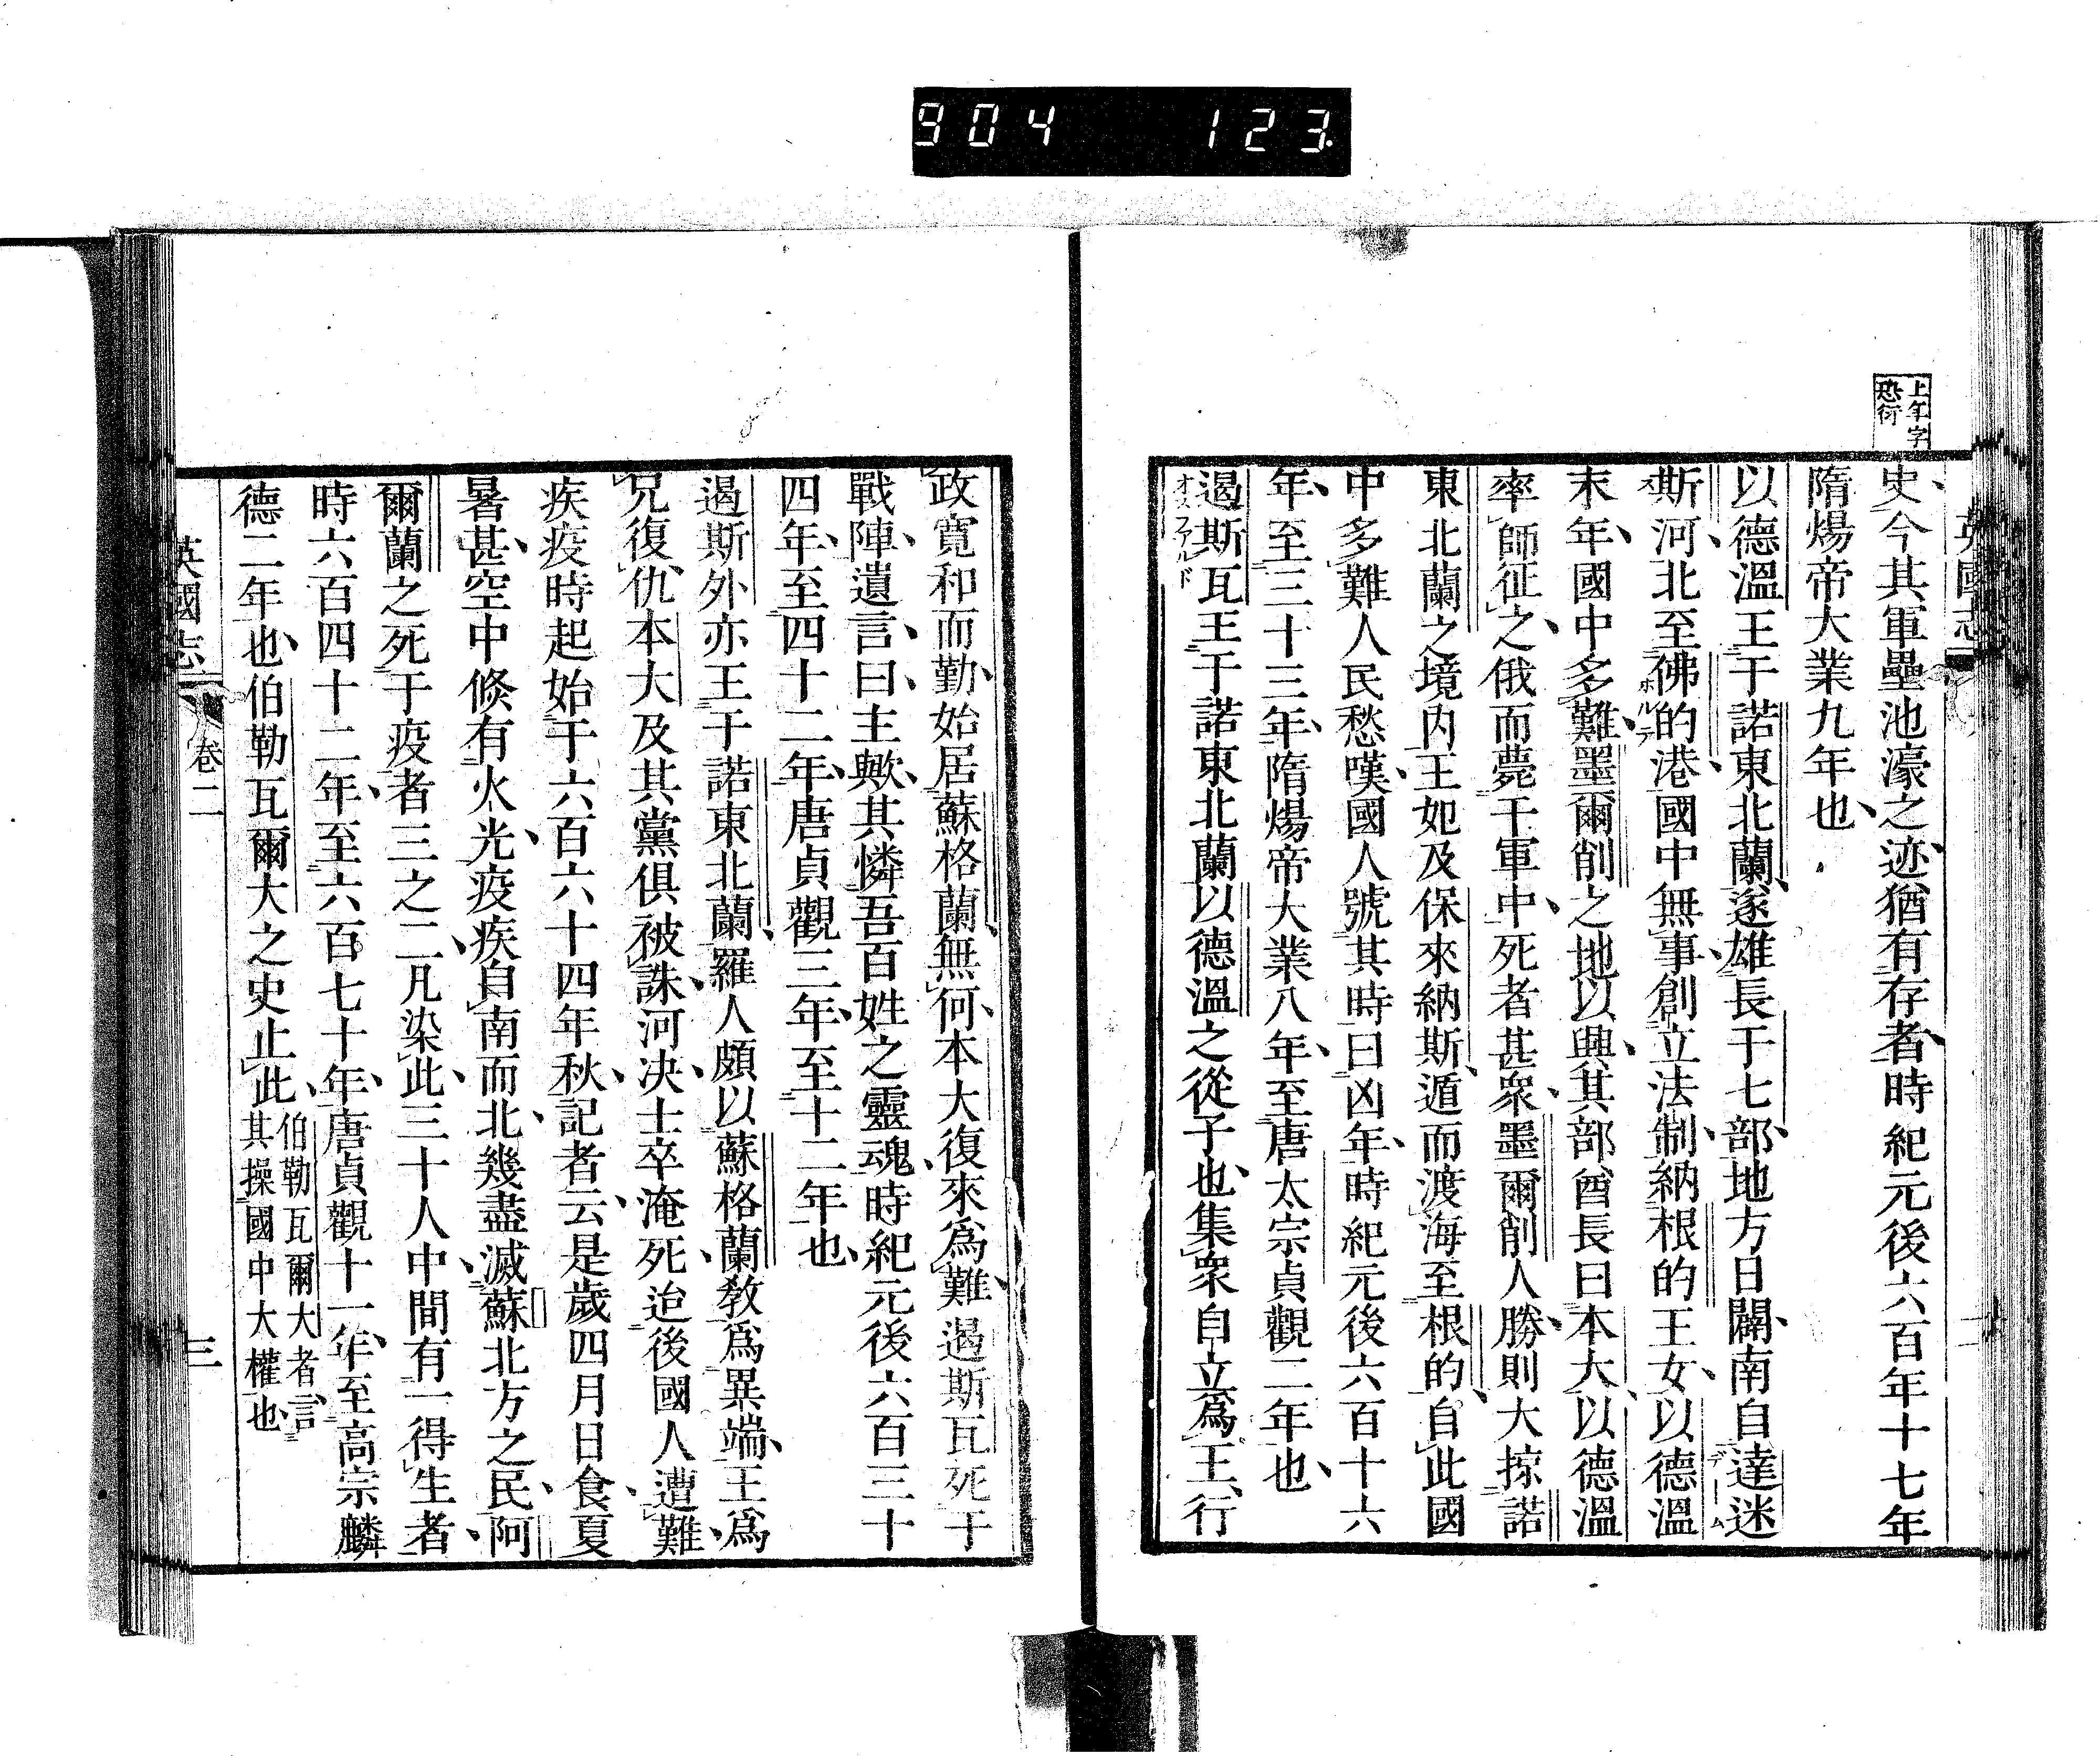 904 123
上年字
恐衍
史今其軍壘池濠之迹猶有存者時紀元後六百年十七年
隋煬帝大業九年也
以德溫王于諾東北蘭遂雄長于七部地方日闢南自達迷
デーム
斯河北至佛的港國中無事創立法制納根的王女以德溫
ス ホルデ
末年國中多難墨爾削之地以興其部酋長曰本大以德溫
率師征之俄而薨于軍中死者甚衆墨爾削人勝則大掠諾
東北蘭之境内王妃及保來納斯遁而渡海至根的自此國
中多難人民愁嘆國人號其時曰凶年時紀元後六百十六
年至三十三年隋煬帝大業八年至唐太宗貞觀二年也
遏斯瓦王于諾東北蘭以德溫之從子也集衆自立爲王行
オスファルド
政寬和而勤始居蘇格蘭無何本大復來爲難遏斯瓦死于
戰陣遺言曰主歟其憐吾百姓之靈魂時紀元後六百三十
四年至四十二年唐貞觀三年至十二年也
遏斯外亦王于諾東北蘭羅人頗以蘇格蘭教爲異端王爲
兄復仇本大及其黨俱被誅河决士卒淹死迨後國人遭難
疾疫時起始于六百六十四年秋記者云是歲四月日食夏
暑甚空中倏有火光疫疾自南而北幾盡滅蘇北方之民阿
爾蘭之死于疫者三之二凡染此三十人中間有一得生者
時六百四十二年至六百七十年唐貞觀十一年至高宗麟
德二年也伯勒瓦爾大之史止此
伯勒瓦爾大者言
其操國中大權也
英國志 卷二 三